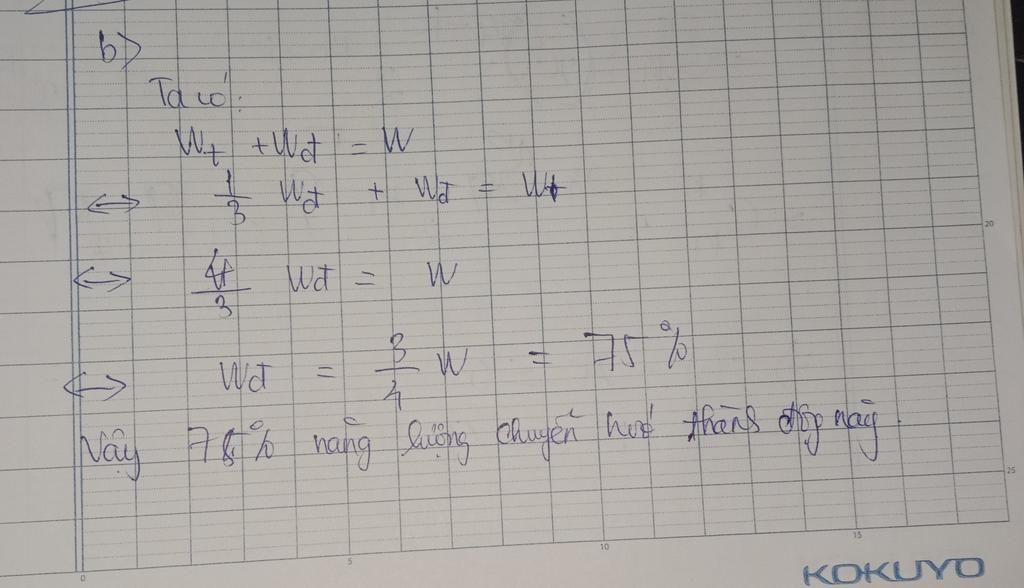 b>
Ta có:
Wt + Wđ = W
⟺ 1/3 Wđ + Wđ = W
⟺ 4/3 Wđ = W
⟺ Wđ = 3/4 W = 75%
Vậy 75% năng lượng chuyển hoá thành động năng.
20
25
0 5 10 15
KOKUYO